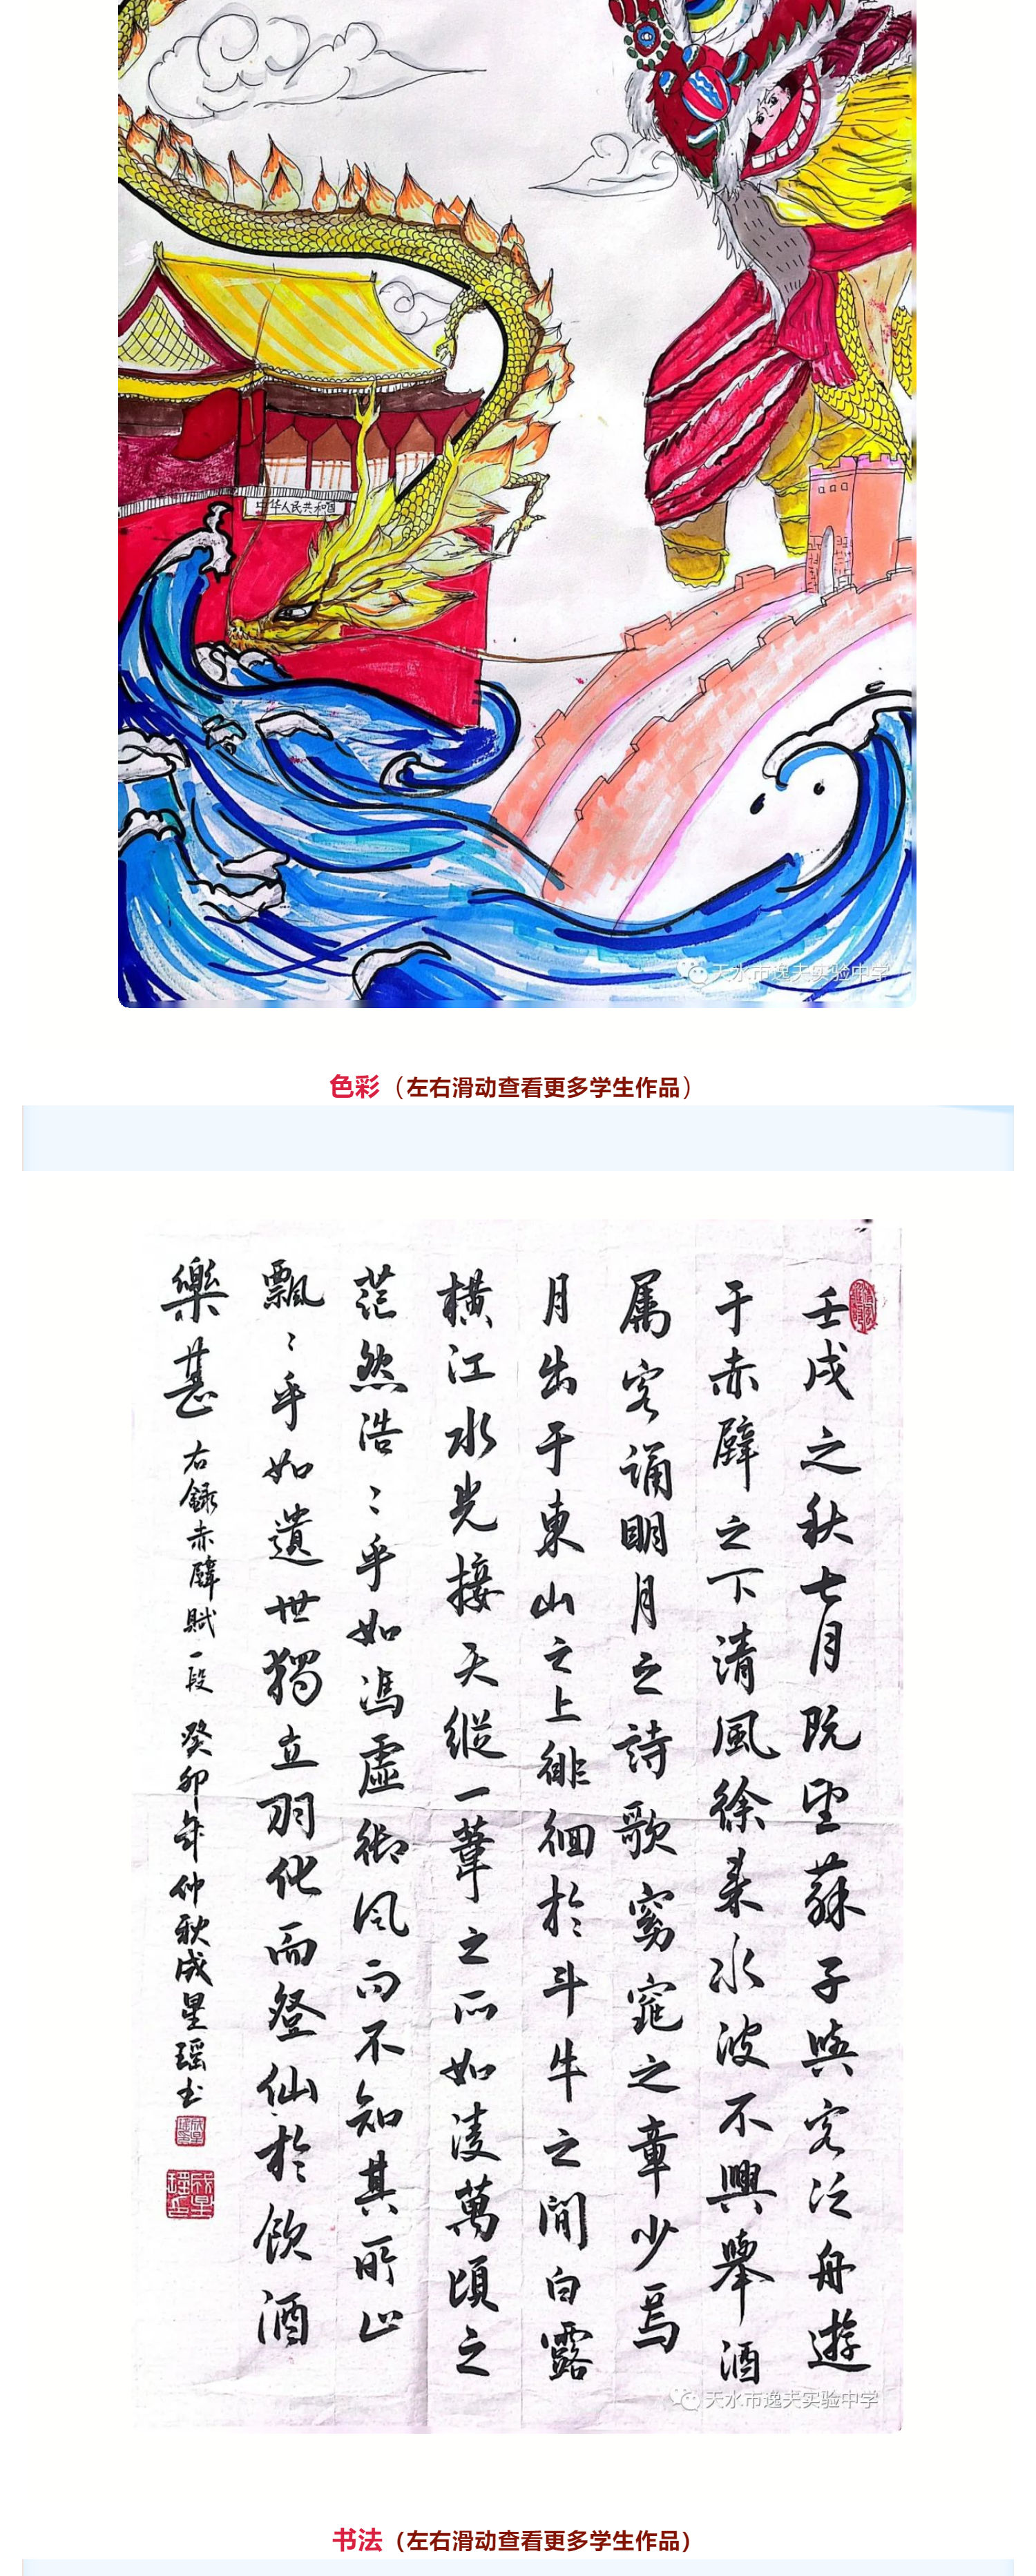 中华人民共和国
天水市逸夫实验中学
色彩（左右滑动查看更多学生作品）
壬戌之秋七月既望蘇子與客泛舟遊
于赤壁之下清風徐來水波不興舉酒
属客誦明月之詩歌窈窕之章少焉
月出于東山之上徘徊於斗牛之間白露
橫江水光接天縱一葦之所如淩萬頃之
茫然浩〻乎如馮虛御风而不知其所止
飄〻乎如遺世獨立羽化而登仙於飲酒
樂甚 右録赤壁賦一段 癸卯年仲秋成星瑶书
天水市逸夫实验中学
书法（左右滑动查看更多学生作品）